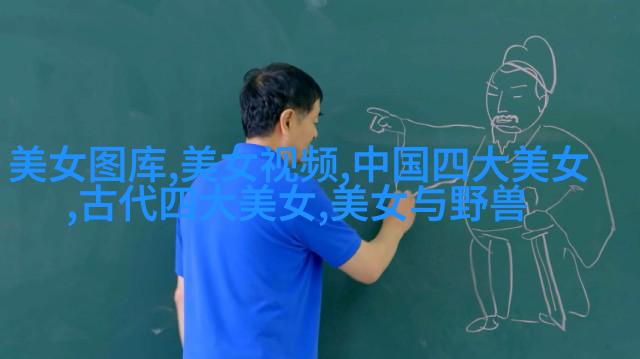 美女图库,美女视频,中国四大美女
,古代四大美女,美女与野兽